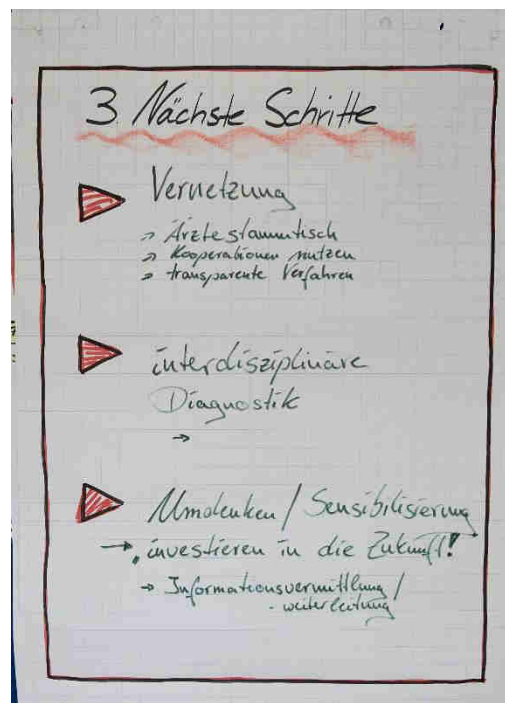 3 Nächste Schritte
Vernetzung
→ Ärztestammtisch
→ Kooperationen nutzen
→ transparente Verfahren
interdisziplinäre
Diagnostik
→
Umdenken / Sensibilisierung
→ investieren in die Zukunft!
→ Informationsvermittlung /
- weiterleitung